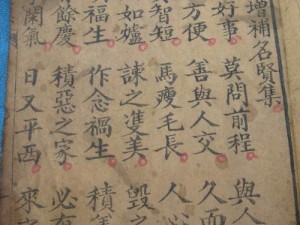 增補名賢集
好事 莫問前程 與人
方便 善與人交 久而
智短 馬瘦毛長 人心
如爐 諫之雙美 毀之
福生 作念禍生 積善
餘慶 積惡之家 必有
闌氣 日又平西 來之